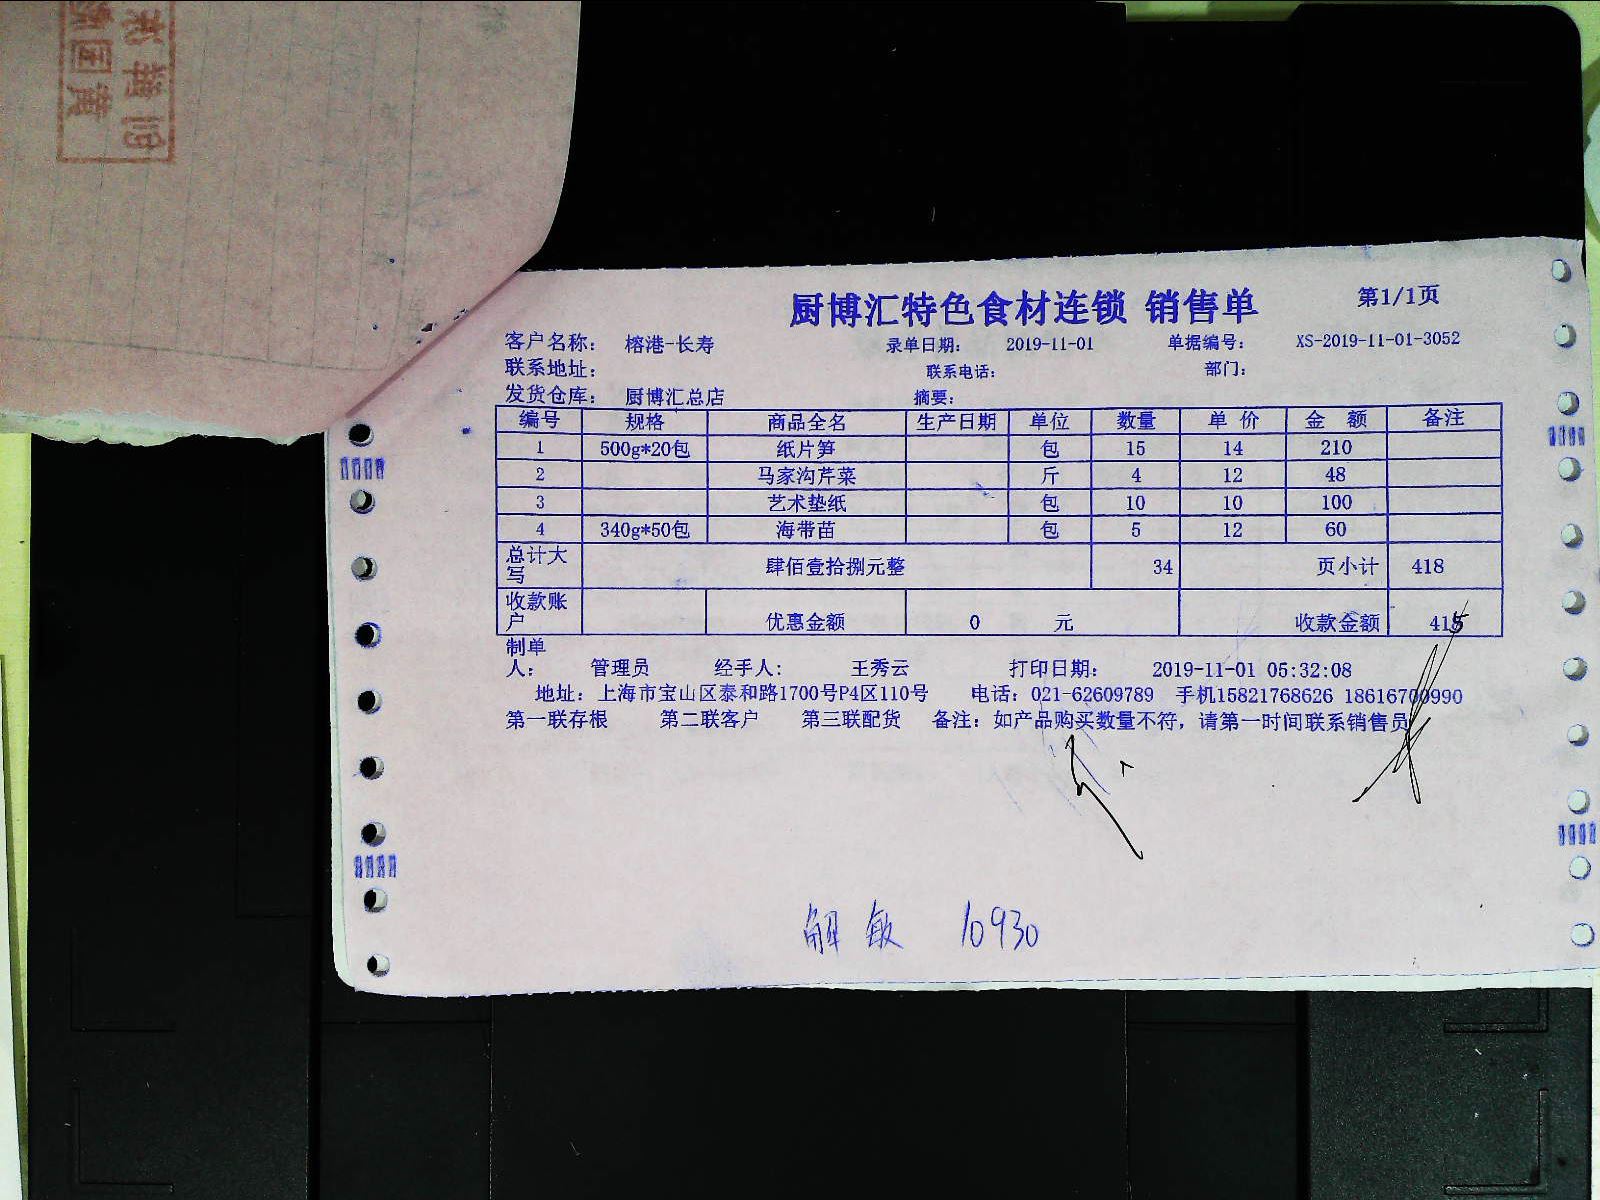 厨博汇特色食材连锁 销售单 第1/1页
客户名称： 榕港-长寿 录单日期： 2019-11-01 单据编号： XS-2019-11-01-3052
联系地址： 联系电话： 部门：
发货仓库： 厨博汇总店 摘要：
编号 规格 商品全名 生产日期 单位 数量 单 价 金 额 备注
1 500g*20包 纸片笋 包 15 14 210
2 马家沟芹菜 斤 4 12 48
3 艺术垫纸 包 10 10 100
4 340g*50包 海带苗 包 5 12 60
总计大写 肆佰壹拾捌元整 34 页小计 418
收款账户 优惠金额 0 元 收款金额 418
制单人： 管理员 经手人： 王秀云 打印日期： 2019-11-01 05:32:08
地址：上海市宝山区泰和路1700号P4区110号 电话：021-62609789 手机15821768626 18616700990
第一联存根 第二联客户 第三联配货 备注：如产品购买数量不符，请第一时间联系销售员
解敏 10930